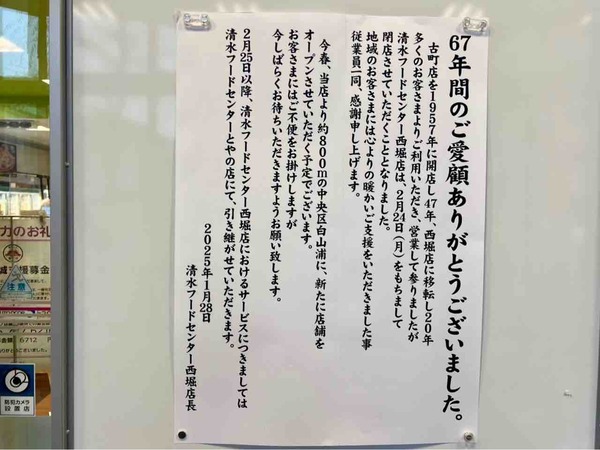 67年間のご愛顧ありがとうございました。
古町店を1957年に開店し47年、西堀店に移転し20年
多くのお客さまよりご利用いただき、営業して参りましたが
清水フードセンター西堀店は、2月24日(月)をもちまして
閉店させていただくこととなりました。
地域のお客さまには心よりの暖かいご支援をいただきました事
従業員一同、感謝申し上げます。
今春、当店より約800mの中央区白山浦に、新たに店舗を
オープンさせていただく予定でございます。
お客さまにはご不便をお掛けしますが
今しばらくお待ちいただきますようお願い致します。
2月25日以降、清水フードセンター西堀店におけるサービスにつきましては
清水フードセンターとやの店にて、引き継がせていただきます。
2025年1月28日
清水フードセンター西堀店長
力のお礼
援募金
注意
6712
ありがとうございました。
防犯カメラ
設置店